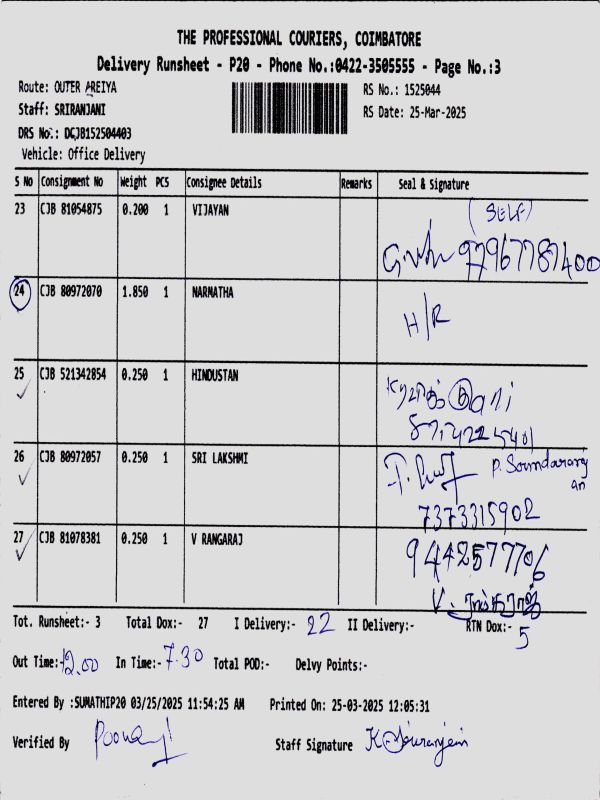 THE PROFESSIONAL COURIERS, COIMBATORE
Delivery Runsheet - P20 - Phone No.:0422-3505555 - Page No.:3
Route: OUTER AREIYA
RS No.: 1525044
Staff: SRIRANJANI
RS Date: 25-Mar-2025
DRS No.: DCJB152504403
Vehicle: Office Delivery
S No Consignment No Weight PCS Consignee Details Remarks Seal & Signature
23 CJB 81054875 0.200 1 VIJAYAN (SELF)
97967787400
24 CJB 80972070 1.850 1 NARMATHA H/R
25 CJB 521342854 0.250 1 HINDUSTAN
26 CJB 80972057 0.250 1 SRI LAKSHMI P. Soundararajan
7373315902
27 CJB 81078381 0.250 1 V RANGARAJ 9442577706
V. ரங்கராஜ்
Tot. Runsheet:- 3 Total Dox:- 27 I Delivery:- 22 II Delivery:- RTN Dox:- 5
Out Time:- 12.00 In Time:- 7.30 Total POD:- Delvy Points:-
Entered By :SUMATHIP20 03/25/2025 11:54:25 AM Printed On: 25-03-2025 12:05:31
Verified By Staff Signature